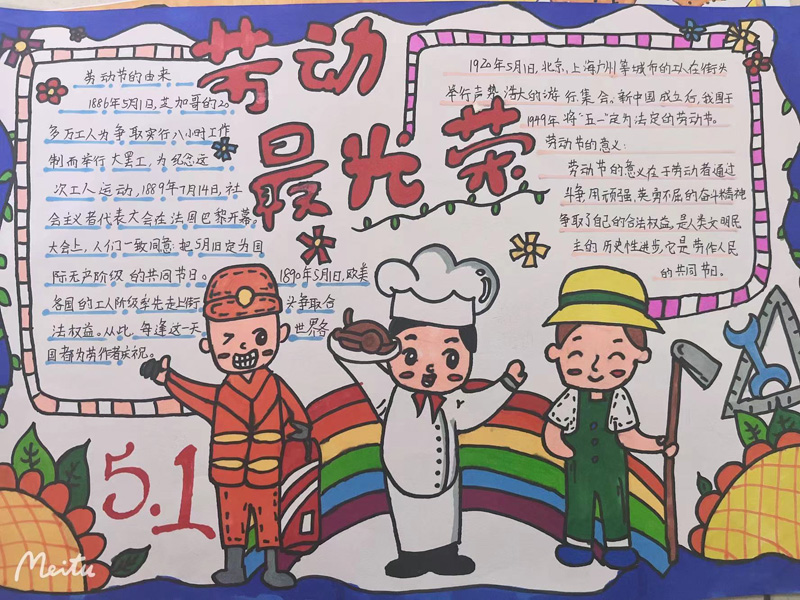 劳动
最光荣
劳动节的由来
1886年5月1日,芝加哥的20
多万工人为争取实行八小时工作
制而举行大罢工,为纪念这
次工人运动,1889年7月14日,社
会主义者代表大会在法国巴黎开幕。
大会上,人们一致同意:把5月1日定为国
际无产阶级的共同节日。 1890年5月1日,欧美
各国的工人阶级率先走上街头争取合
法权益。从此,每逢这一天世界各
国都为劳作者庆祝。
1920年5月1日,北京、上海广州等城市的工人在街头
举行声势浩大的游行集会。新中国成立后,我国于
1949年将“五一”定为法定的劳动节。
劳动节的意义:
劳动节的意义在于劳动者通过
斗争,用顽强、英勇不屈的奋斗精神
争取了自己的合法权益,是人类文明民
主的历史性进步,它是劳作人民
的共同节日。
5.1
Meitu